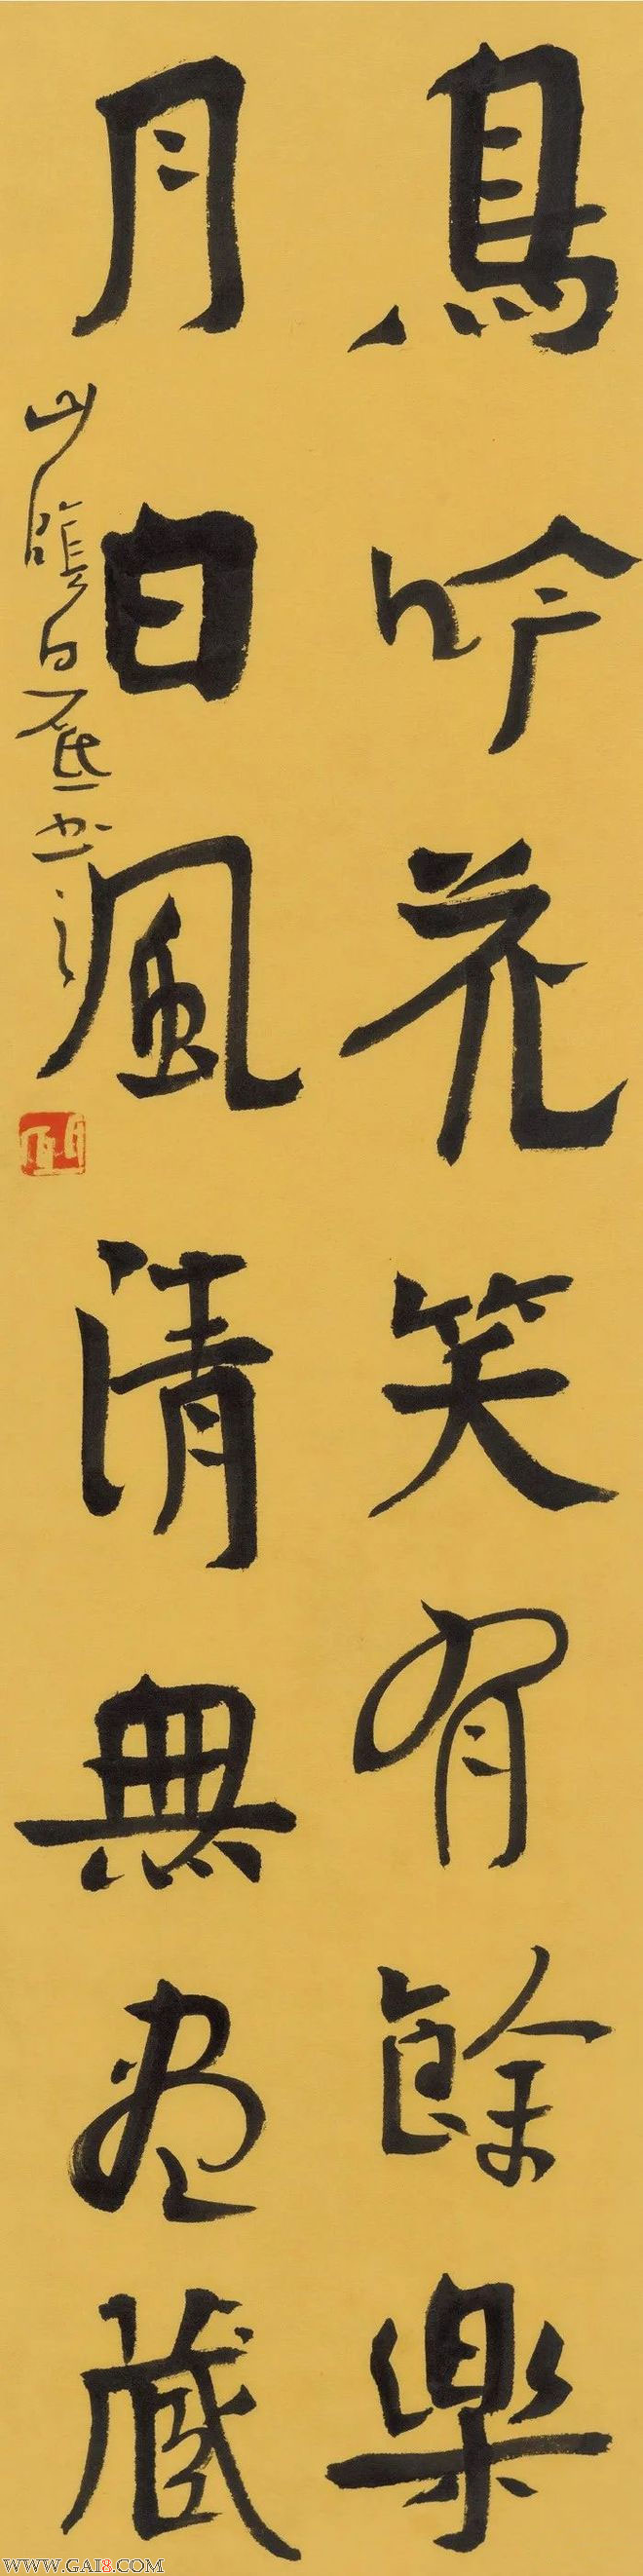 鳥吟花笑有餘樂
月白風清無盡藏
山陰白砥書
WWW.GAI8.COM